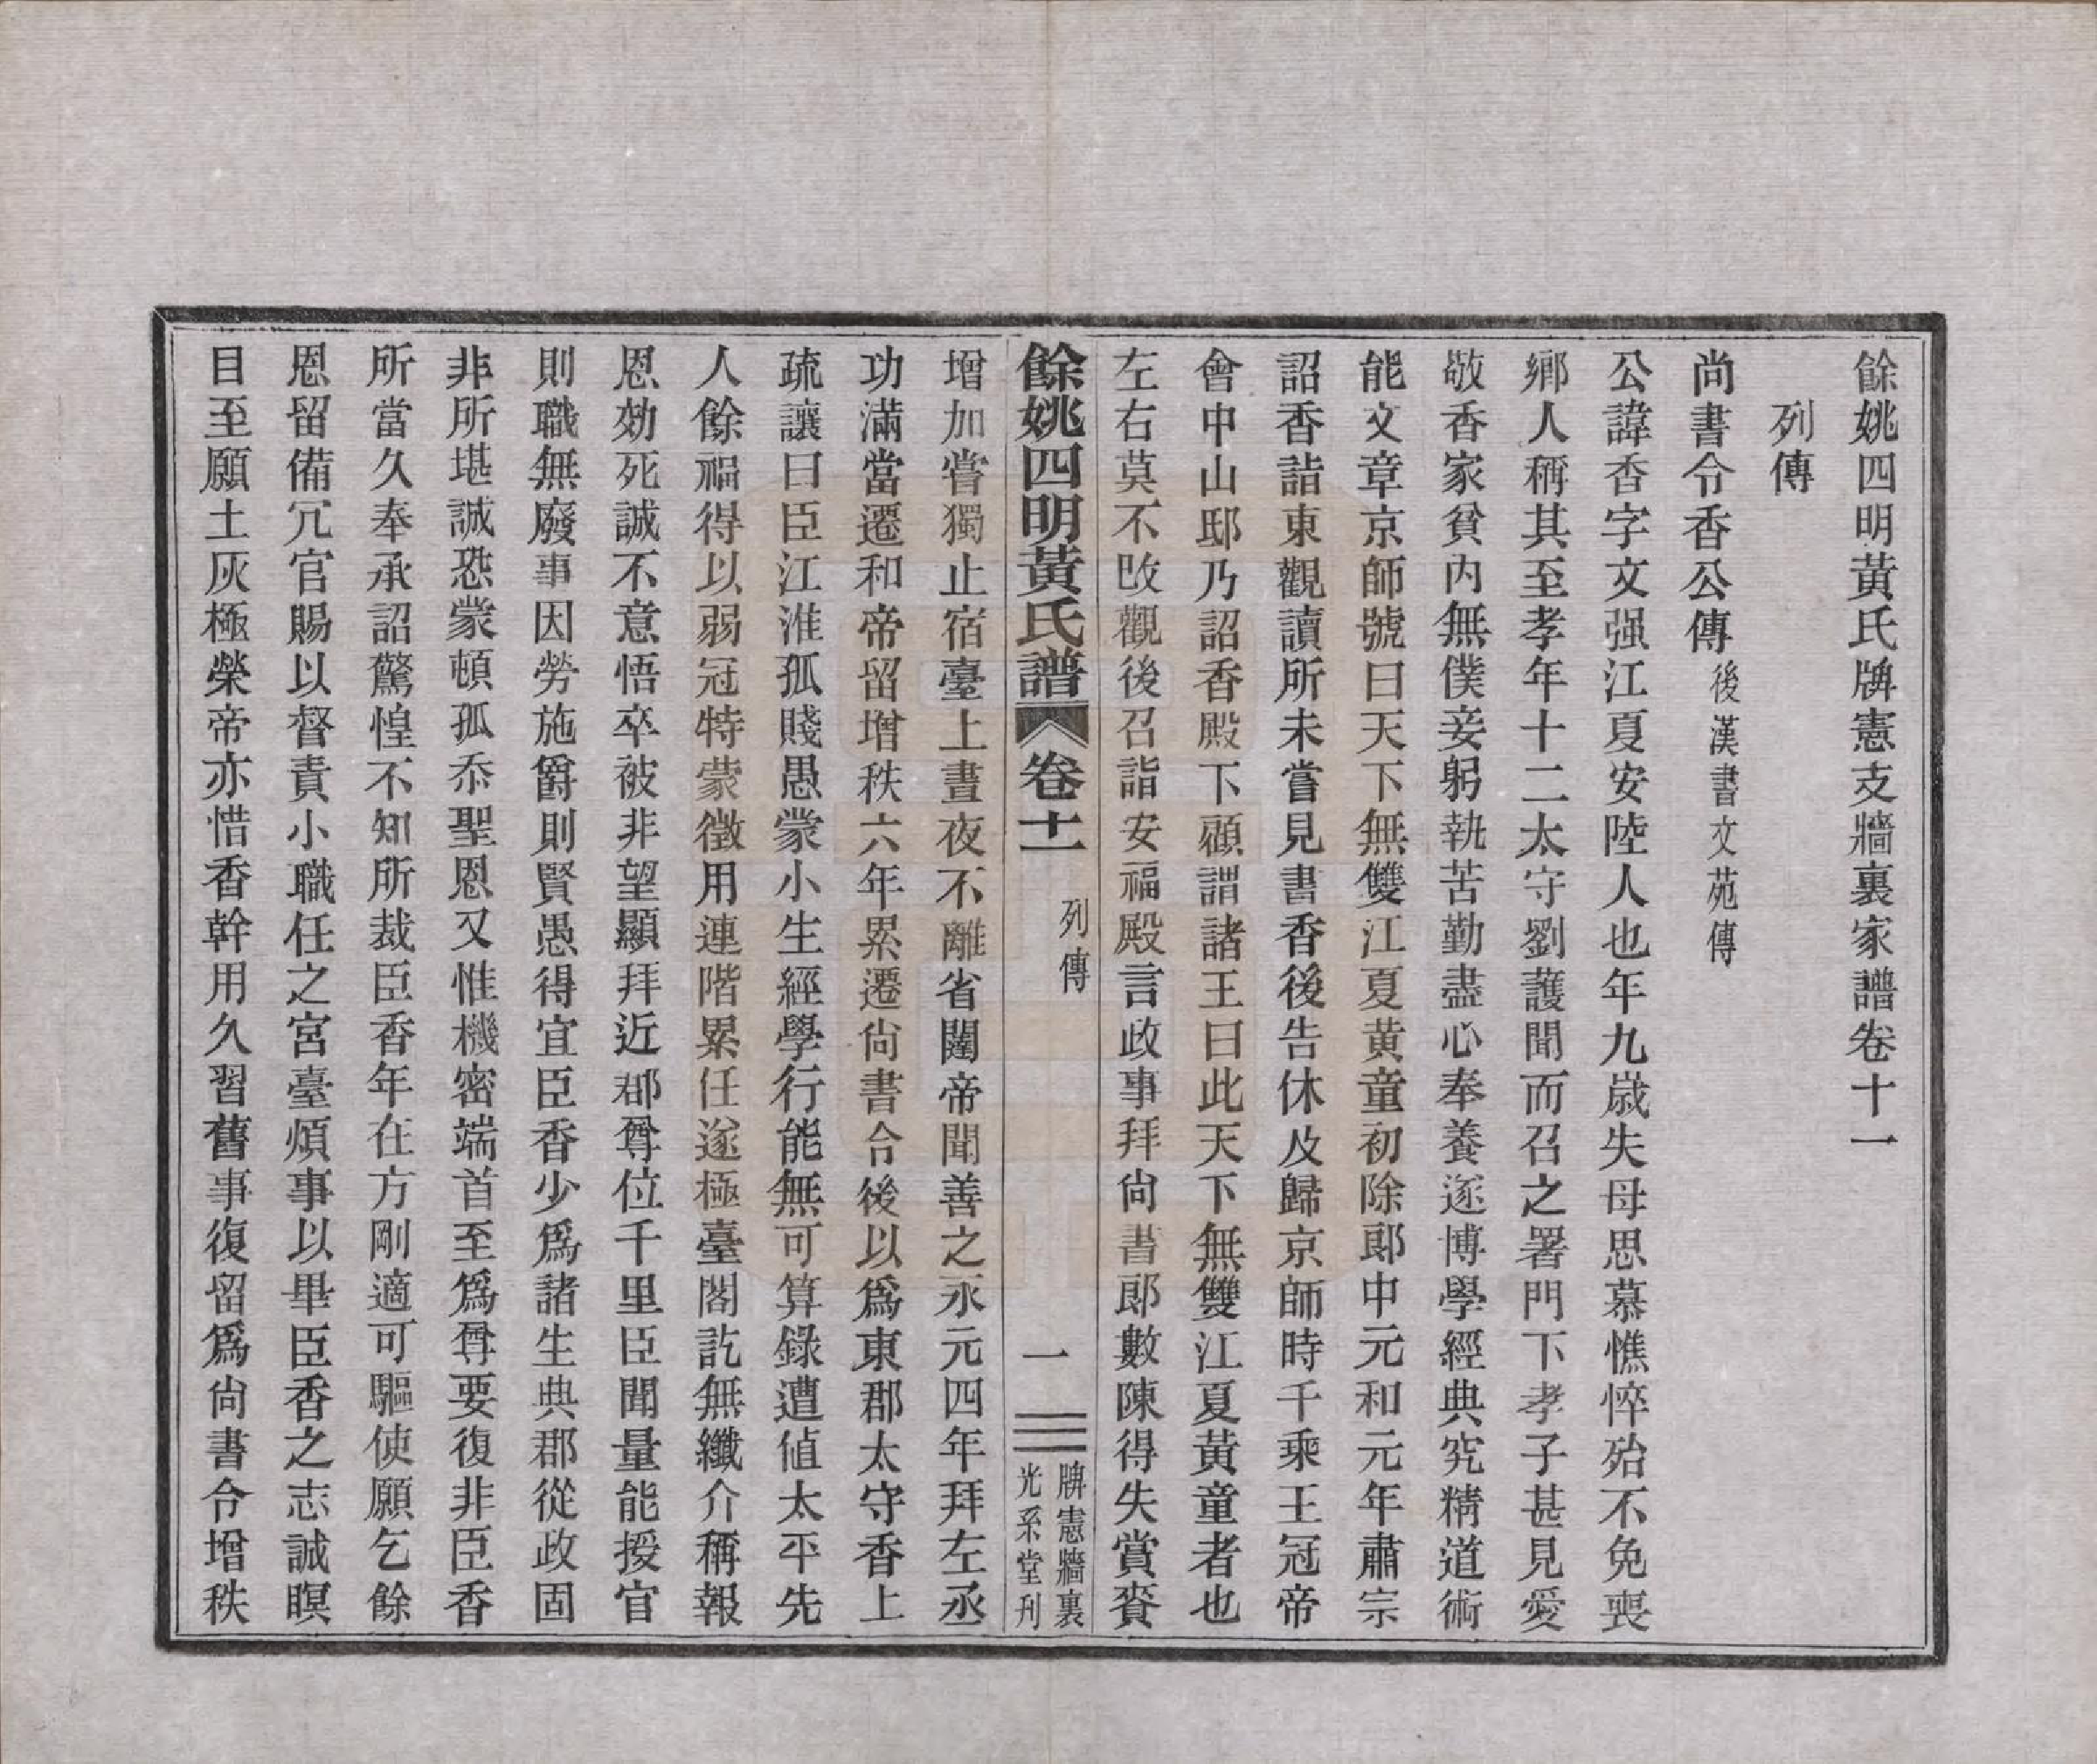 餘姚四明黃氏牌憲支牆裏家譜卷十一
列傳
尚書令香公傳後漢書文苑傳
公諱香字文强江夏安陸人也年九歲失母思慕憔悴殆不免喪
鄉人稱其至孝年十二太守劉護聞而召之署門下孝子甚見愛
敬香家貧內無僕妾躬執苦勤盡心奉養遂博學經典究精道術
能文章京師號曰天下無雙江夏黄童初除郞中元和元年肅宗
詔香詣東觀讀所未嘗見書香後告休及歸京師時千乘王冠帝
會中山邸乃詔香殿下顧謂諸王曰此天下無雙江夏黃童者也
左右莫不改觀後召詣安福殿言政事拜尙書郞數陳得失賞賚
餘姚四明黃氏譜 卷十一 列傳 一 牌憲牆裏 光系堂刋
增加嘗獨止宿臺上晝夜不離省闥帝聞善之永元四年拜左丞
功滿當遷和帝留增秩六年累遷尙書令後以爲東郡太守香上
疏讓曰臣江淮孤賤愚蒙小生經學行能無可算錄遭値太平先
人餘福得以弱冠特蒙徵用連階累任遂極臺閣訖無纖介稱報
恩効死誠不意悟卒被非望顯拜近郡尊位千里臣聞量能授官
則職無廢事因勞施爵則賢愚得宜臣香少爲諸生典郡從政固
非所堪誠恐蒙頓孤忝聖恩又惟機密端首至爲尊要復非臣香
所當久奉承詔驚惶不知所裁臣香年在方剛適可驅使願乞餘
恩留備冗官賜以督責小職任之宮臺煩事以畢臣香之志誠瞑
目至願土灰極榮帝亦惜香幹用久習舊事復留爲尙書令增秩